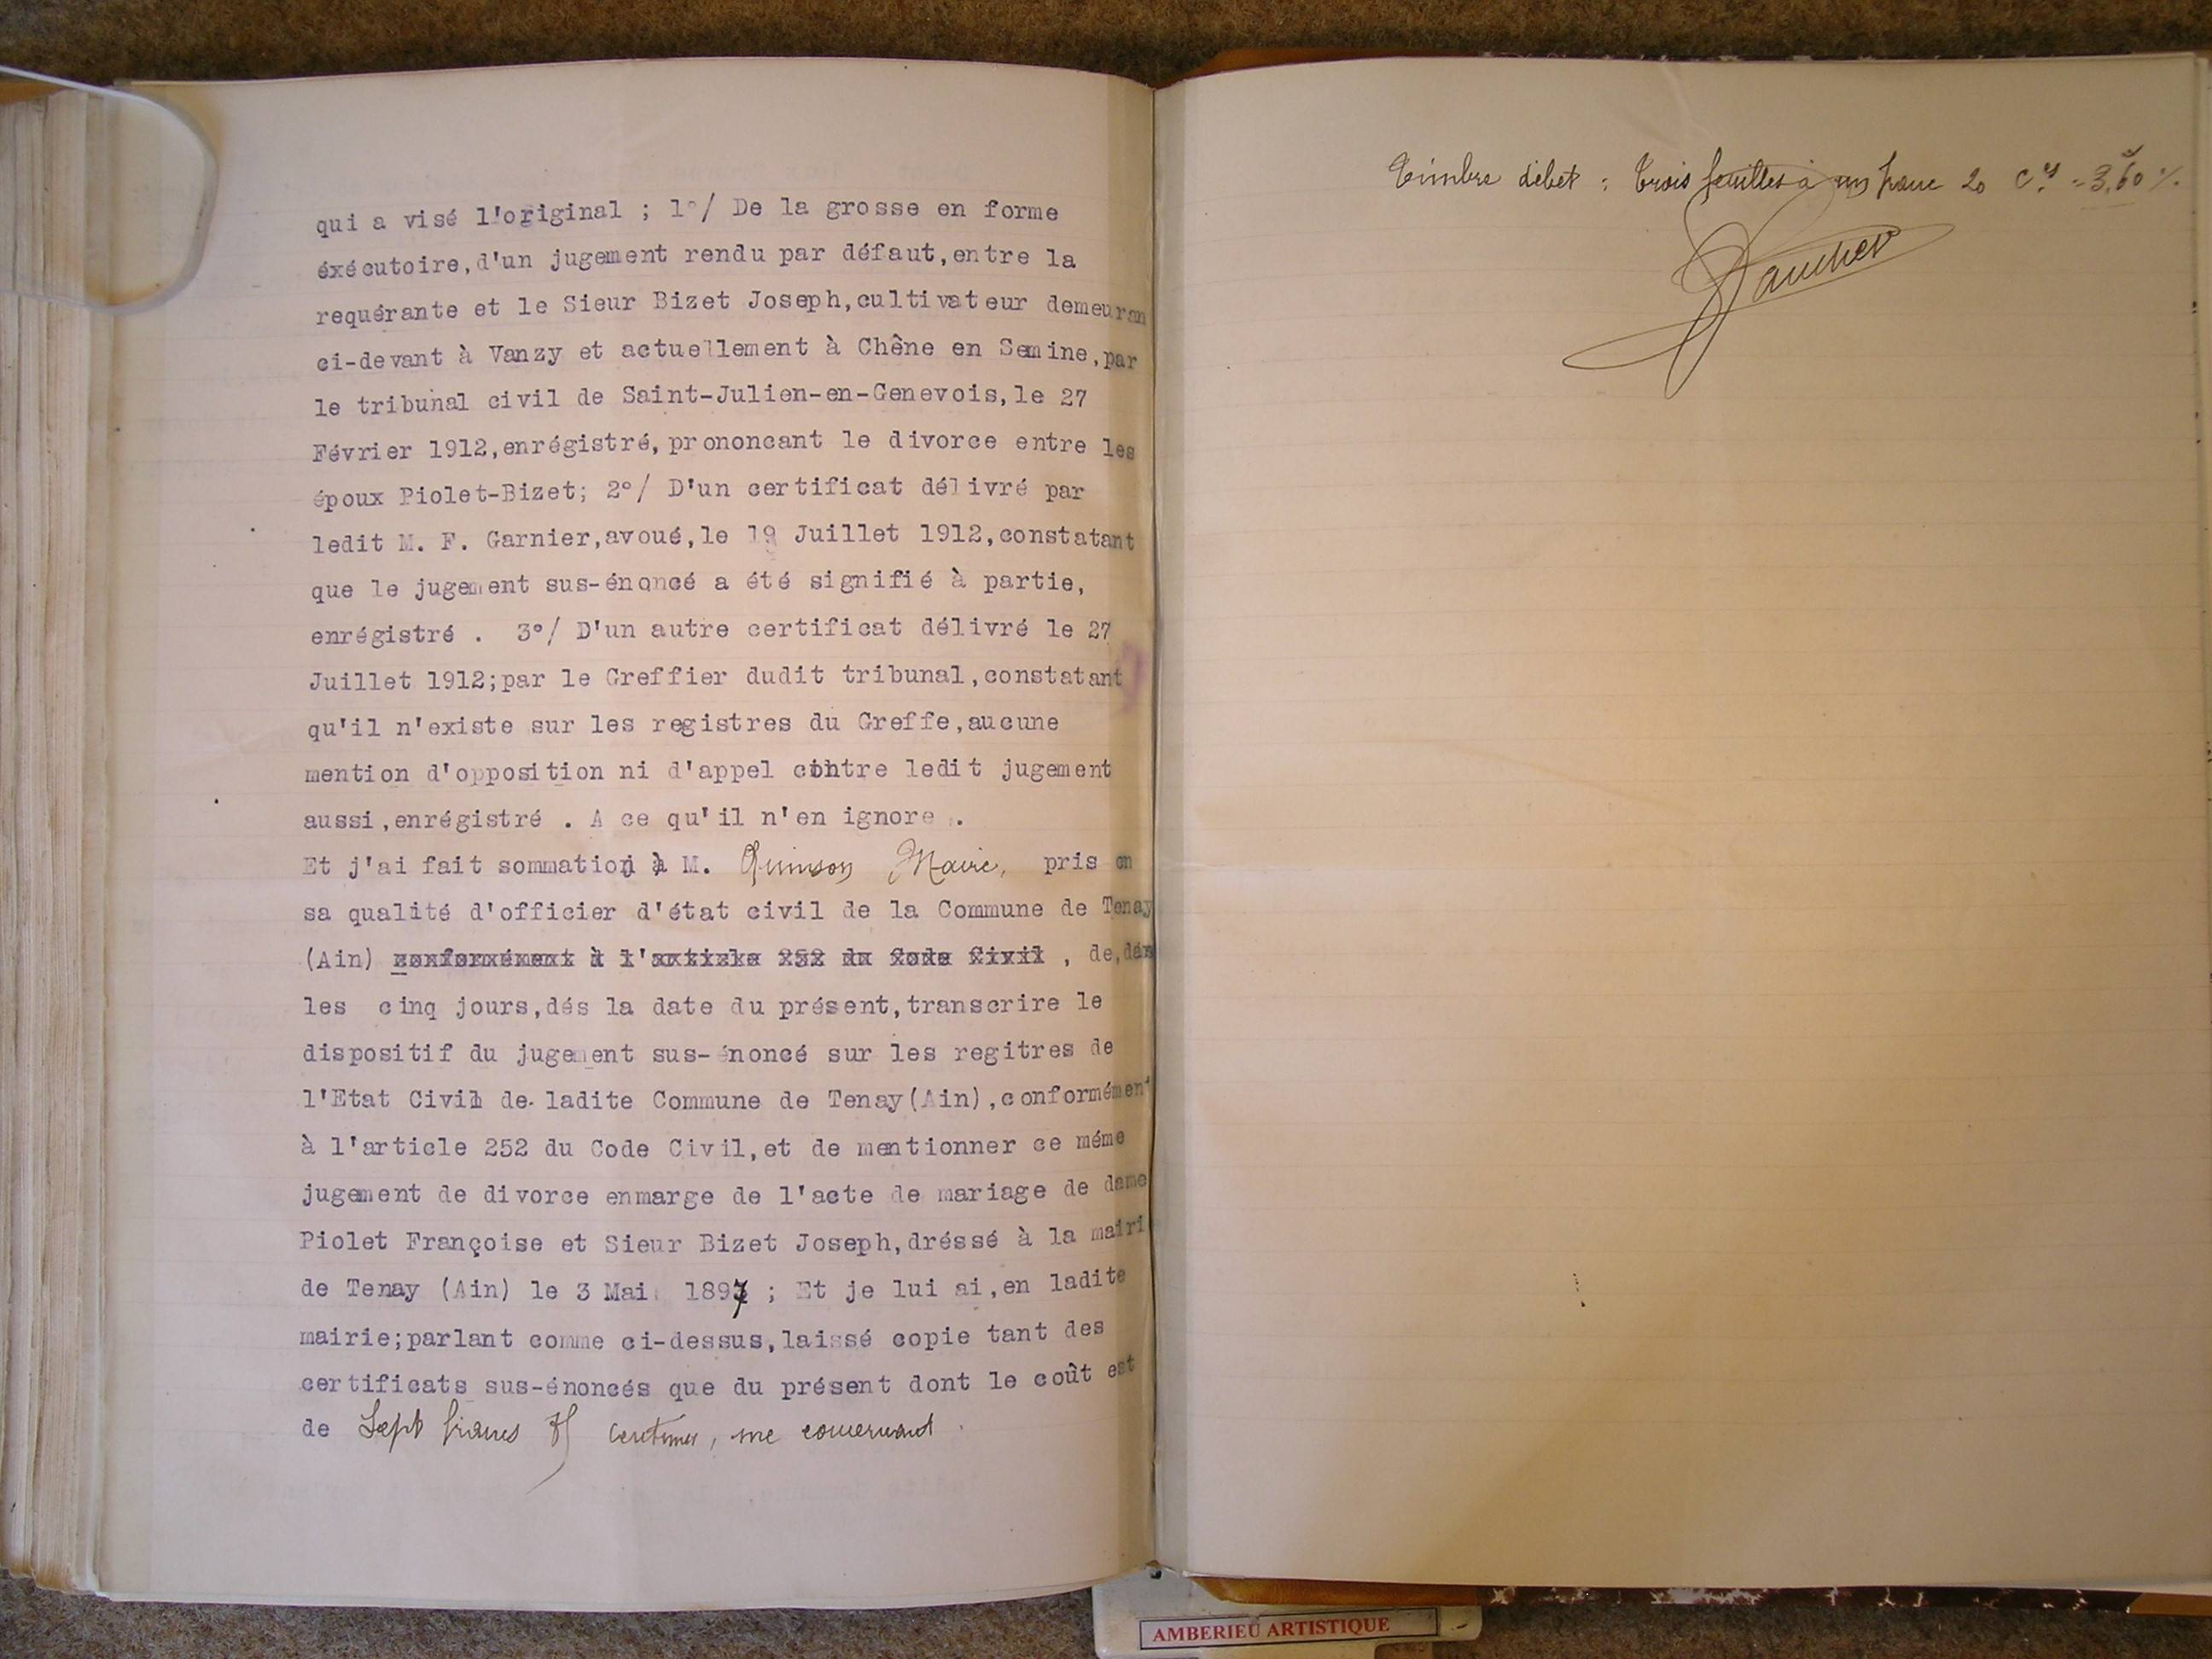 qui a visé l'original ; 1°/ De la grosse en forme
éxécutoire,d'un jugement rendu par défaut,entre la
requérante et le Sieur Bizet Joseph,cultivateur demeuran
ci-devant à Vanzy et actuellement à Chêne en Semine,par
le tribunal civil de Saint-Julien-en-Genevois,le 27
Février 1912,enrégistré,prononcant le divorce entre les
époux Piolet-Bizet; 2°/ D'un certificat délivré par
ledit M. F. Garnier,avoué,le 19 Juillet 1912,constatant
que le jugement sus-énoncé a été signifié à partie,
enrégistré . 3°/ D'un autre certificat délivré le 27
Juillet 1912;par le Greffier dudit tribunal,constatant
qu'il n'existe sur les registres du Greffe,aucune
mention d'opposition ni d'appel contre ledit jugement
aussi,enrégistré . A ce qu'il n'en ignore .
Et j'ai fait sommation à M. Quinson Maire, pris en
sa qualité d'officier d'état civil de la Commune de Tenay
(Ain) conformément à l'article 252 du Code Civil , de,dans
les cinq jours,dés la date du présent,transcrire le
dispositif du jugement sus-énoncé sur les regitres de
l'Etat Civil de ladite Commune de Tenay(Ain),conformément
à l'article 252 du Code Civil,et de mentionner ce méme
jugement de divorce enmarge de l'acte de mariage de dame
Piolet Françoise et Sieur Bizet Joseph,dréssé à la mairi
de Tenay (Ain) le 3 Mai 1897 ; Et je lui ai,en ladite
mairie;parlant comme ci-dessus,laissé copie tant des
certificats sus-énoncés que du présent dont le coût est
de Sept francs centimes, me concernant .
Timbre débet : trois feuilles à un franc 20 c.es = 3,60 %.
AMBERIEU ARTISTIQUE